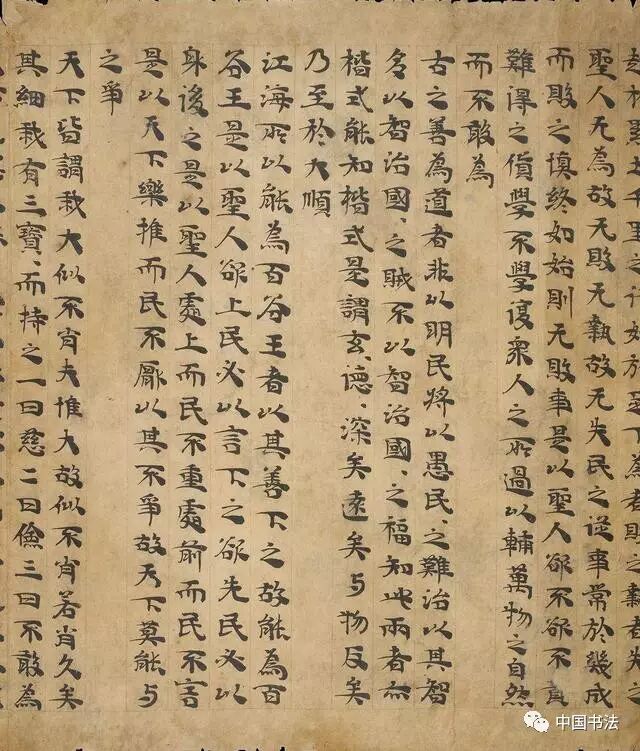 千里之行始於足下為者敗之執者失之
聖人无為故无敗无執故无失民之従事常於幾成
而敗之慎終如始則无敗事是以聖人欲不欲不貴
難得之貨學不學復衆人之所過以輔萬物之自然
而不敢為
古之善為道者非以明民將以愚民、之難治以其智
多以智治國、之賊不以智治國、之福知此兩者亦
楷式能知楷式是謂玄、德、深矣遠矣与物反矣
乃至於大順
江海所以能為百谷王者以其善下之故能為百
谷王是以聖人欲上民必以言下之欲先民必以
身後之是以聖人處上而民不重處前而民不害
是以天下樂推而民不厭以其不爭故天下莫能与
之爭
天下皆謂我大似不肖夫惟大故似不肖若肖久矣
其細我有三寶、而持之一曰慈二曰儉三曰不敢為
中国书法